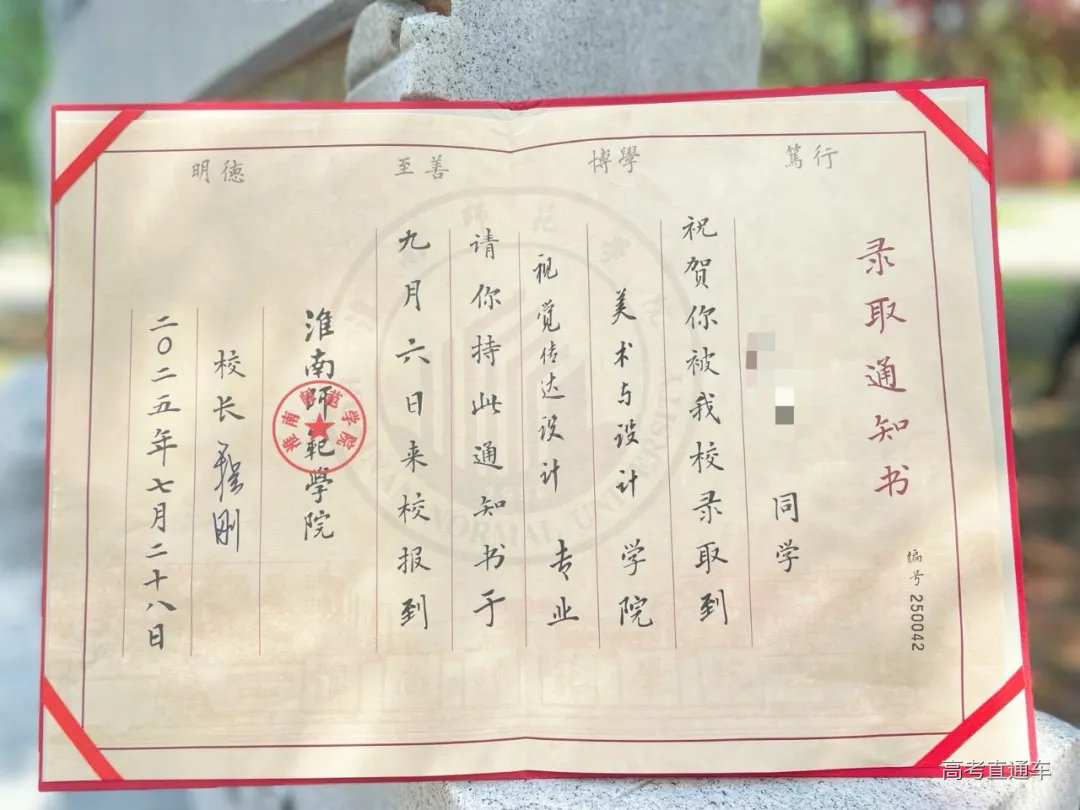 明德 至善 博學 篤行
录取通知书
编号 250042
同学
祝贺你被我校录取到
美术与设计 学院
视觉传达设计 专业
请你持此通知书于
九月六日来校报到
淮南師範學院
淮南師范学院
校长
二〇二五年七月二十八日
NORMAL UNIVERSITY
高考直通车